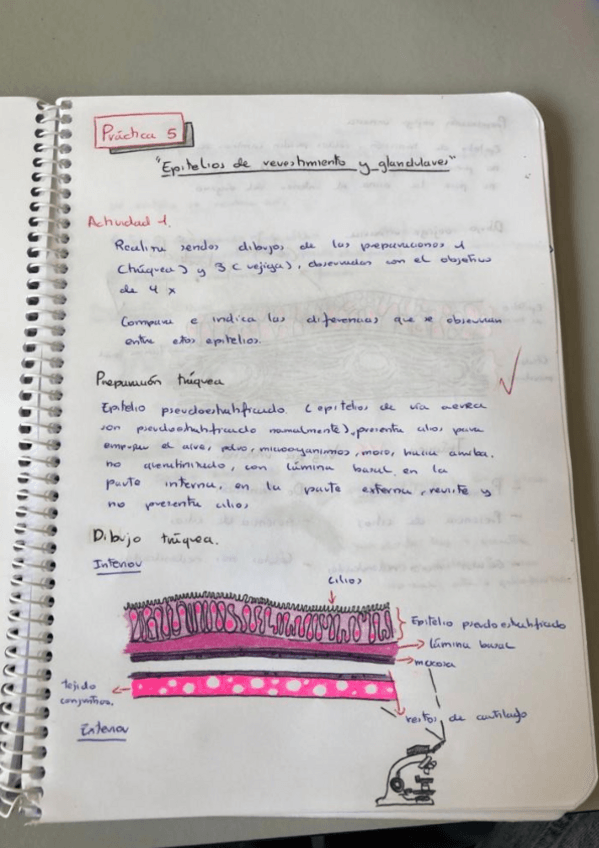 Práctica 5
"Epitelios de revestimiento y glandulares"
Actividad 1.
Realiza sendos dibujos de las preparaciones 1
(tráquea) y 3 (vejiga), observadas con el objetivo
de 4 x
Compara e indica las diferencias que se observan
entre estos epitelios.
Preparación tráquea
Epitelio pseudoestratificado (epitelios de vía aerea
son pseudoestratificado normalmente), presenta cilios para
empujar el aire, polvo, microorganismos, moco, hacia arriba.
no queratinizado, con lámina basal en la
parte interna, en la parte externa, reviste y
no presenta cilios
Dibujo tráquea.
Interior
cilios
Epitelio pseudoestratificado
lámina basal
mucosa
tejido
conjuntivo.
restos de cartílago
Exterior